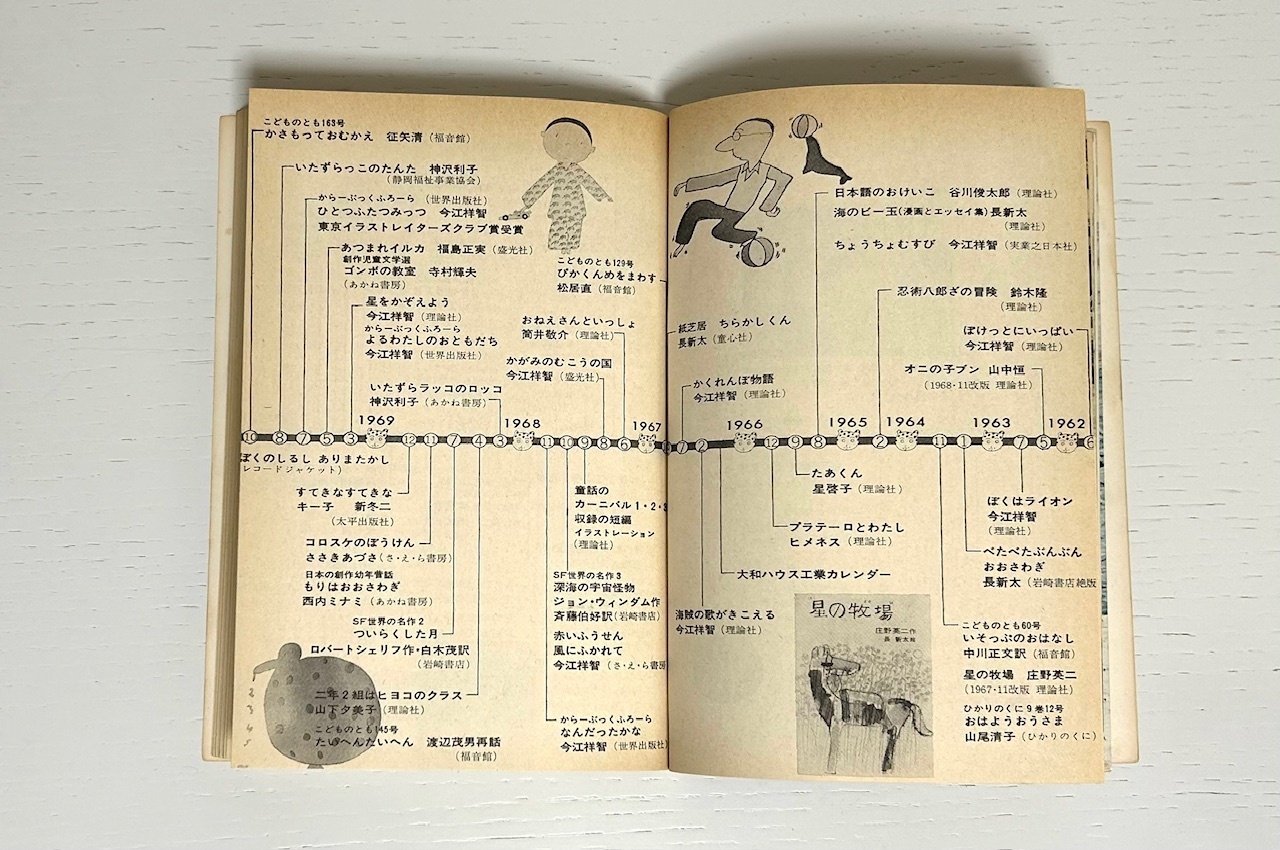 こどものとも163号
かさもっておむかえ 征矢清(福音館)
いたずらっこのたんた 神沢利子
(静岡福祉事業協会)
からーぶっくふろーら(世界出版社)
ひとつふたつみっつ 今江祥智
東京イラストレイターズクラブ賞受賞
あつまれイルカ 福島正実(盛光社)
創作児童文学選
ゴンボの教室 寺村輝夫
(あかね書房)
星をかぞえよう
今江祥智(理論社)
からーぶっくふろーら
よるわたしのおともだち
今江祥智(世界出版社)
いたずらラッコのロッコ
神沢利子(あかね書房)
こどものとも129号
ぴかくんめをまわす
松居直(福音館)
おねえさんといっしょ
筒井敬介(理論社)
かがみのむこうの国
今江祥智(盛光社)
1969
1968
1967
⑩⑧⑦⑤③
⑫⑪⑦④③
⑪⑩⑨⑧⑥
ぼくのしるし ありまたかし
レコードジャケット)
すてきなすてきな
キー子 新冬二
(太平出版社)
コロスケのぼうけん
ささきあづさ(さ・え・ら書房)
日本の創作幼年昔話
もりはおおさわぎ
西内ミナミ(あかね書房)
SF世界の名作2
ついらくした月
ロバートシェリフ作・白木茂訳
(岩崎書店)
二年2組はヒヨコのクラス
山下夕美子(理論社)
こどものとも145号
たいへんたいへん 渡辺茂男再話
(福音館)
2
3
3
4
5
童話の
カーニバル1・2・3
収録の短編
イラストレーション
(理論社)
SF世界の名作3
深海の宇宙怪物
ジョン・ウィンダム作
斉藤伯好訳(岩崎書店)
赤いふうせん
風にふかれて
今江祥智(さ・え・ら書房
からーぶっくふろーら
なんだったかな
今江祥智(世界出版社)
日本語のおけいこ 谷川俊太郎(理論社)
海のビー玉(漫画とエッセイ集)長新太
(理論社)
ちょうちょむすび 今江祥智(実業之日本社)
忍術八郎ざの冒険 鈴木隆
(理論社)
ぽけっとにいっぱい
今江祥智(理論社)
オニの子ブン 山中恒
(1968・11改版 理論社)
紙芝居 ちらかしくん
長新太(童心社)
かくれんぼ物語
今江祥智(理論社)
1966
1965
1964
1963
1962
⑦②
⑫⑨⑧
②
⑪①
⑦⑤
⑥
たあくん
星啓子(理論社)
プラテーロとわたし
ヒメネス(理論社)
大和ハウス工業カレンダー
海賊の歌がきこえる
今江祥智(理論社)
星の牧場
庄野英二作
長新太絵
ぼくはライオン
今江祥智
(理論社)
ぺたぺたぶんぶん
おおさわぎ
長新太(岩崎書店絶版
こどものとも60号
いそっぷのおはなし
中川正文訳(福音館)
星の牧場 庄野英二
(1967・11改版 理論社)
ひかりのくに9巻12号
おはようおうさま
山尾清子(ひかりのくに)